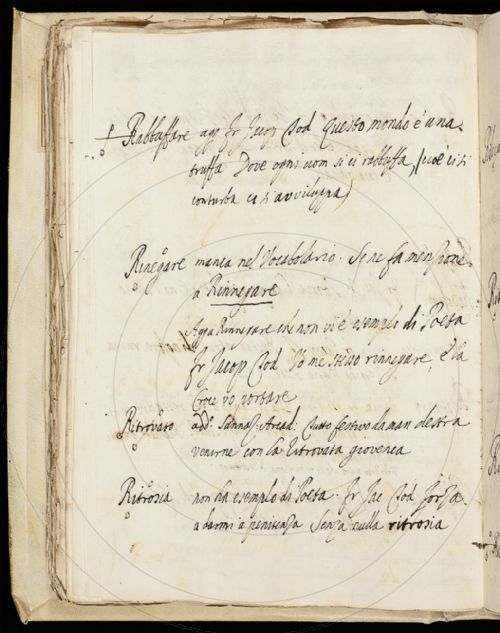 Rabbuffare agg Fr Jacop Tod Questo mondo è una
truffa Dove ogni uom si ci rabbuffa, (cioè ci si
conturba e si avviluppa)
Rinegare manca nel Vocabolario. Se ne fa menzione
a Rinnegare
Agg a Rinnegare che non vi è esempio di Poeta
Fr Jacop Tod Vo me stesso rinnegare, E la
Croce vo portare
Ritrovato add. Sannaz: Arcad: tutto festivo da man destra
venirne con la ritrovata giovenca
Ritrosia non ha esempio di Poeta. Fr Jac Tod
a darmi a penitenza Senza nulla ritrosia